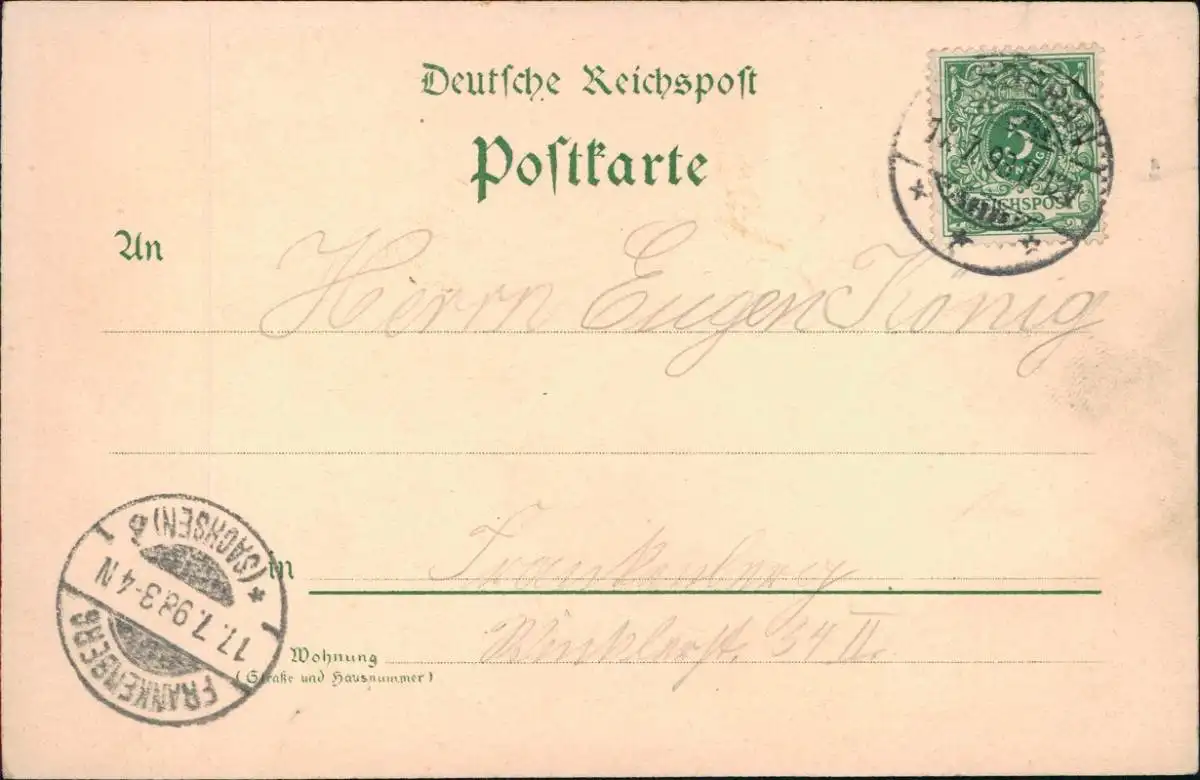 Deutsche Reichspost
Postkarte
An Herrn Eugen König
in Frankenberg
Wohnung Winklerst. 34 II.
(Straße und Hausnummer)
5
REICHSPOST
17.7.98.11-12V
FRANKENBERG
17.7.98.3-4 N
*(SACHSEN) b